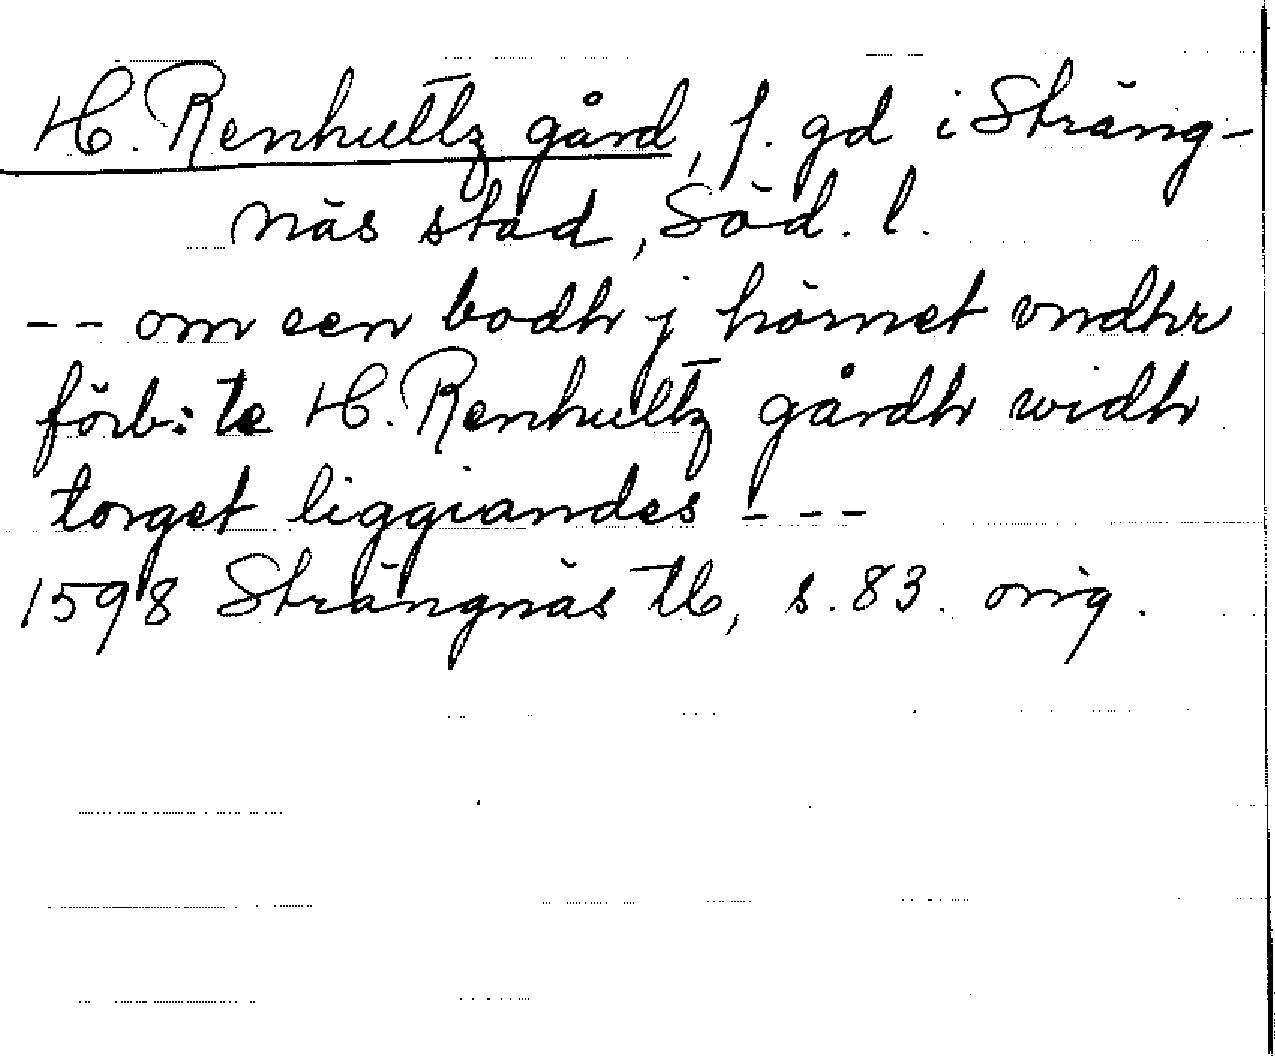 H. Renhulltz gård, f. gd i Sträng-
näs stad, Söd. l.
-- om een bodh j hörnet vndhr
förb:te H. Renhulltz gårdh widh
torget liggiandes ---
1598 Strängnäs tb, s. 83. orig.